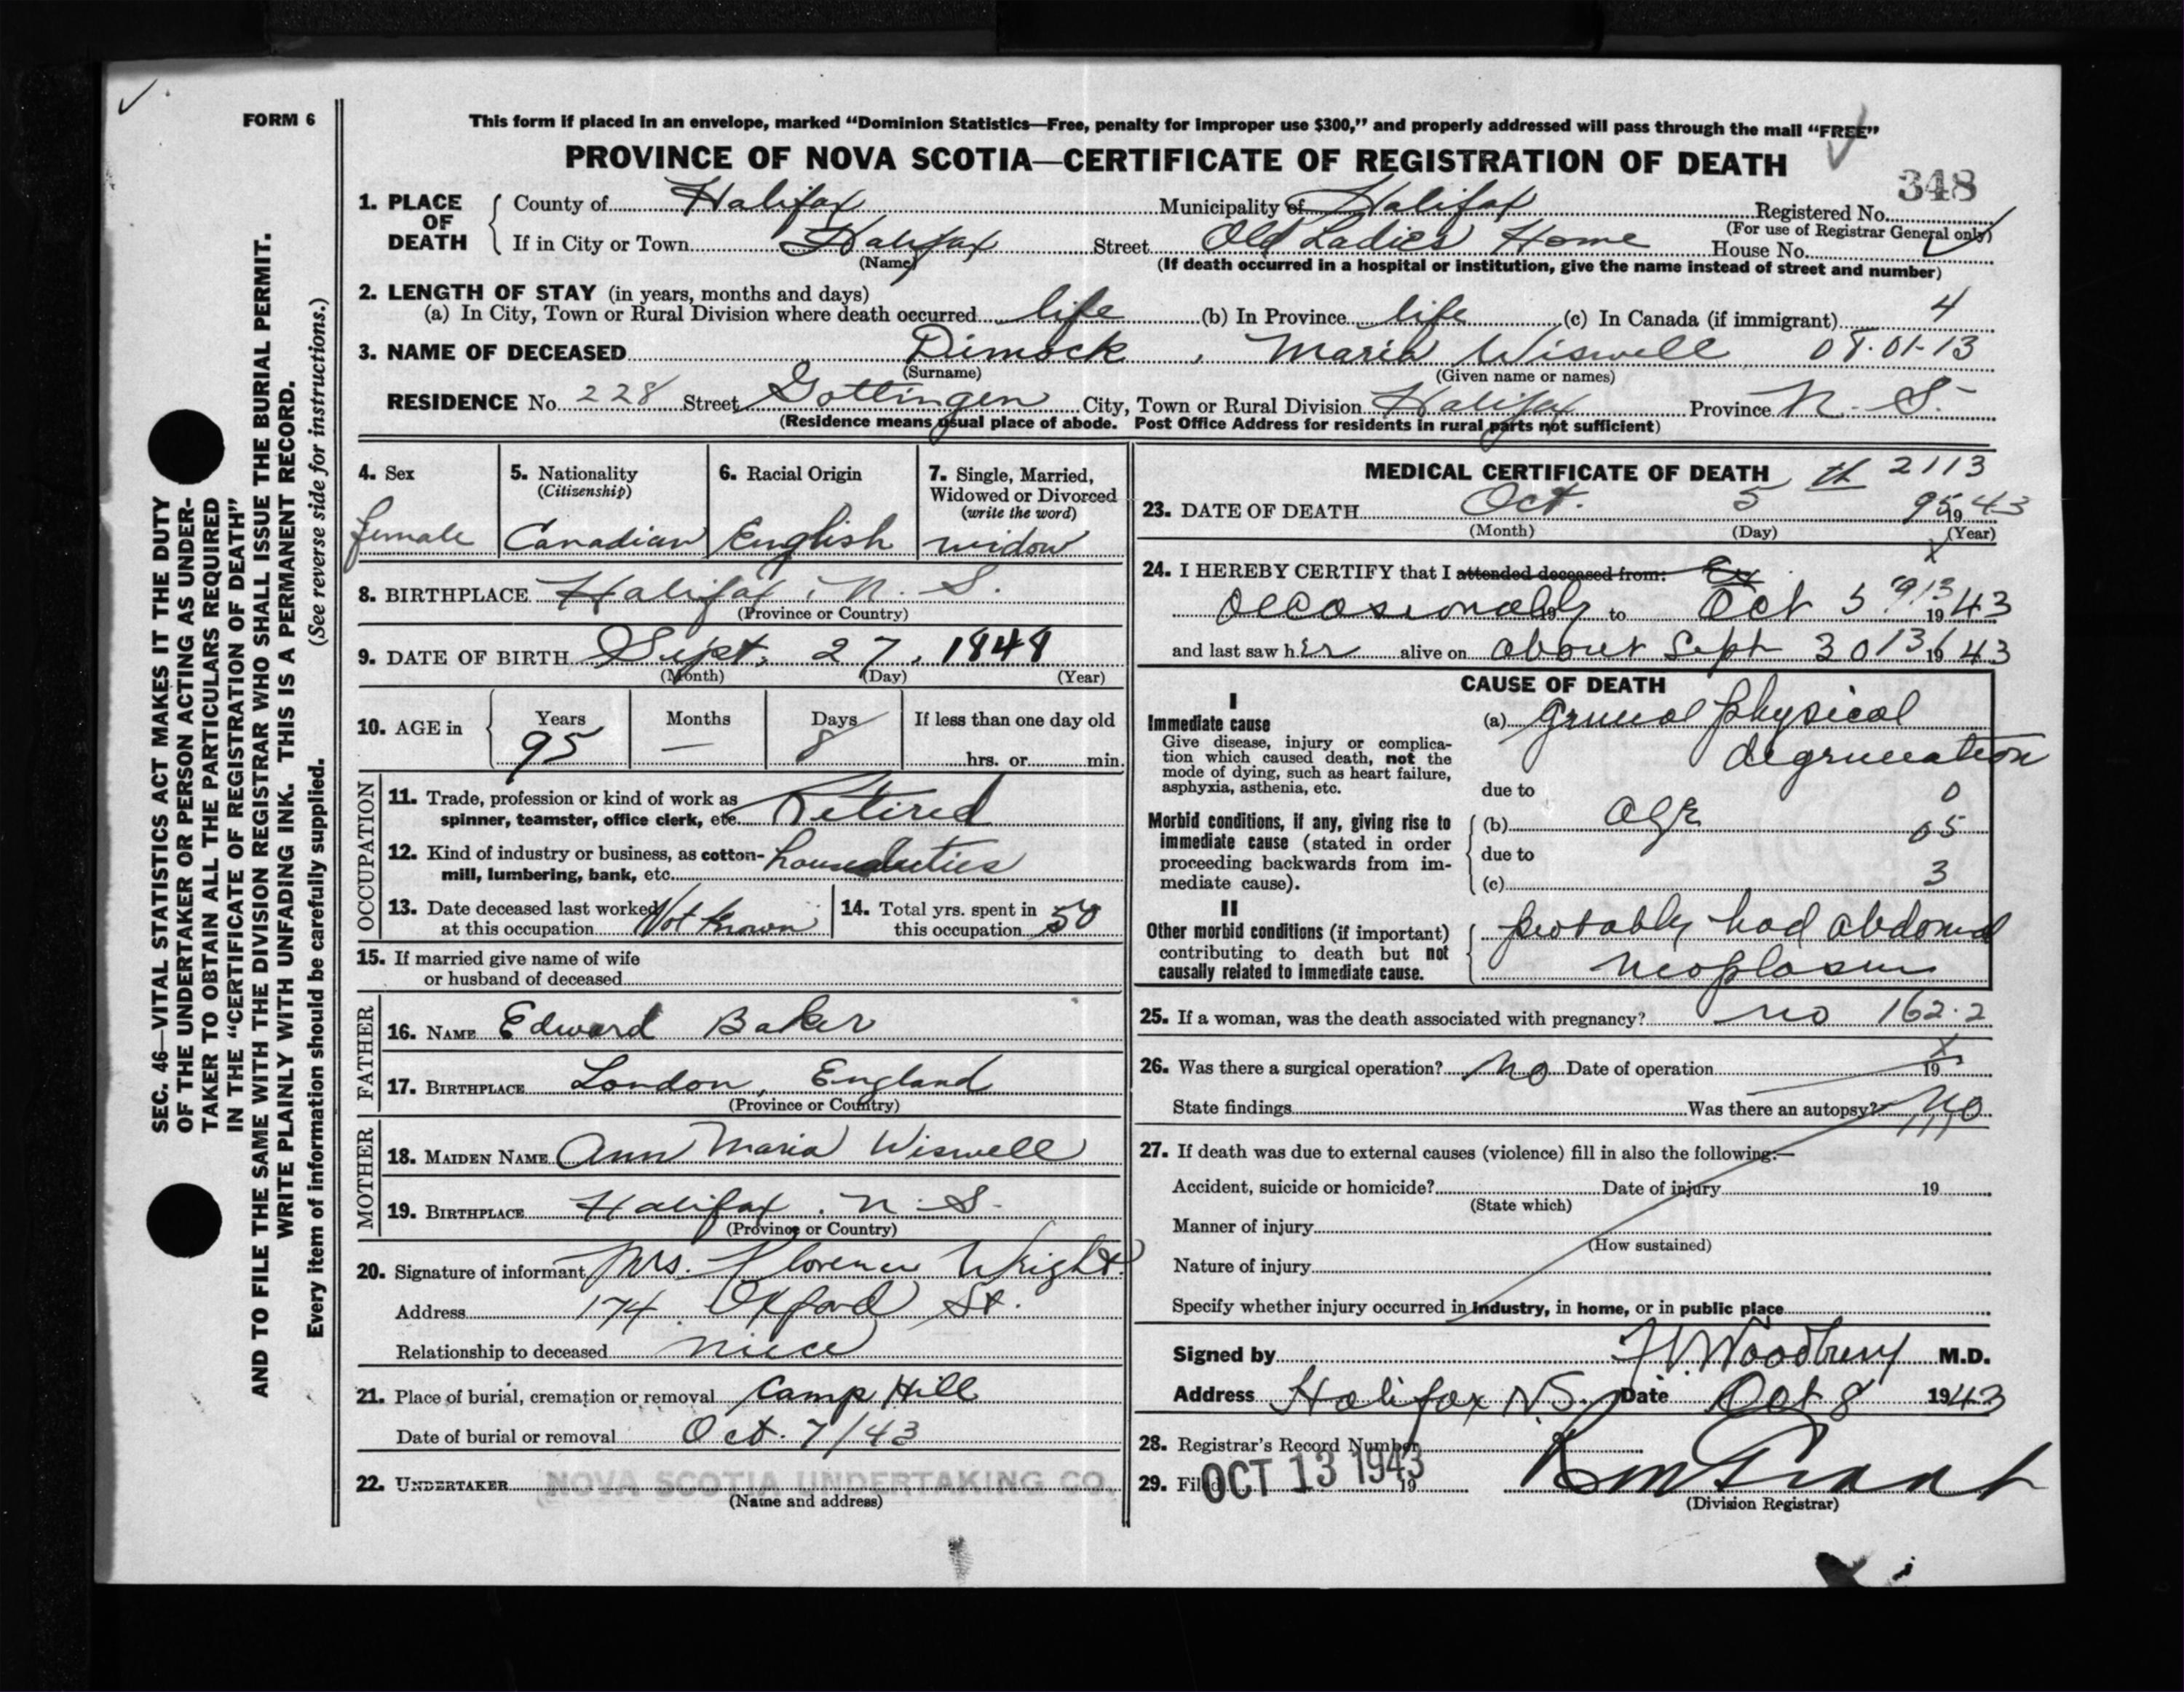 FORM 6
This form if placed in an envelope, marked “Dominion Statistics—Free, penalty for improper use $300,” and properly addressed will pass through the mail “FREE”
PROVINCE OF NOVA SCOTIA—CERTIFICATE OF REGISTRATION OF DEATH
348
1. PLACE OF DEATH
County of Halifax Municipality of Halifax Registered No.
(For use of Registrar General only)
If in City or Town Halifax Street Old Ladies Home House No.
(Name) (If death occurred in a hospital or institution, give the name instead of street and number)
2. LENGTH OF STAY (in years, months and days)
(a) In City, Town or Rural Division where death occurred life (b) In Province life (c) In Canada (if immigrant) 4
3. NAME OF DECEASED Dimock, Maria Wiswell 08-01-13
(Surname) (Given name or names)
RESIDENCE No. 228 Street Gottingen City, Town or Rural Division Halifax Province N. S.
(Residence means usual place of abode. Post Office Address for residents in rural parts not sufficient)
4. Sex female
5. Nationality (Citizenship) Canadian
6. Racial Origin English
7. Single, Married, Widowed or Divorced (write the word) widow
8. BIRTHPLACE Halifax, N. S.
(Province or Country)
9. DATE OF BIRTH Sept. 27, 1848
(Month) (Day) (Year)
10. AGE in Years 95 Months — Days 8 If less than one day old hrs. or min.
OCCUPATION
11. Trade, profession or kind of work as spinner, teamster, office clerk, etc. Retired
12. Kind of industry or business, as cotton-mill, lumbering, bank, etc. house duties
13. Date deceased last worked at this occupation Not known
14. Total yrs. spent in this occupation 50
15. If married give name of wife or husband of deceased
FATHER
16. NAME Edward Baker
17. BIRTHPLACE London, England
(Province or Country)
MOTHER
18. MAIDEN NAME Ann Maria Wiswell
19. BIRTHPLACE Halifax, N. S.
(Province or Country)
20. Signature of informant Mrs. Florence Wright.
Address 174 Oxford St.
Relationship to deceased niece
21. Place of burial, cremation or removal Camp Hill
Date of burial or removal Oct. 7/43
22. UNDERTAKER NOVA SCOTIA UNDERTAKING CO.
(Name and address)
MEDICAL CERTIFICATE OF DEATH 2113
23. DATE OF DEATH Oct. 5th 95 1943
(Month) (Day) (Year)
24. I HEREBY CERTIFY that I attended deceased from:
occasionally 19 to Oct 5 913 1943
and last saw her alive on about Sept 30 13 1943
CAUSE OF DEATH
I
Immediate cause
Give disease, injury or complication which caused death, not the mode of dying, such as heart failure, asphyxia, asthenia, etc.
(a) general physical
degeneration
due to 0
Morbid conditions, if any, giving rise to immediate cause (stated in order proceeding backwards from immediate cause).
(b) age 05
due to
(c) 3
II
Other morbid conditions (if important) contributing to death but not causally related to immediate cause.
probably had abdominal
neoplasm
25. If a woman, was the death associated with pregnancy? no 162.2
26. Was there a surgical operation? No Date of operation 19
State findings Was there an autopsy? No
27. If death was due to external causes (violence) fill in also the following:—
Accident, suicide or homicide? Date of injury 19
(State which)
Manner of injury
(How sustained)
Nature of injury
Specify whether injury occurred in industry, in home, or in public place
Signed by Woodbury M.D.
Address Halifax N.S. Date Oct 8 1943
28. Registrar's Record Number
29. Filed OCT 13 1943 19
(Division Registrar)
SEC. 46—VITAL STATISTICS ACT MAKES IT THE DUTY
OF THE UNDERTAKER OR PERSON ACTING AS UNDER-
TAKER TO OBTAIN ALL THE PARTICULARS REQUIRED
IN THE “CERTIFICATE OF REGISTRATION OF DEATH”
AND TO FILE THE SAME WITH THE DIVISION REGISTRAR WHO SHALL ISSUE THE BURIAL PERMIT.
WRITE PLAINLY WITH UNFADING INK. THIS IS A PERMANENT RECORD.
Every item of information should be carefully supplied. (See reverse side for instructions.)